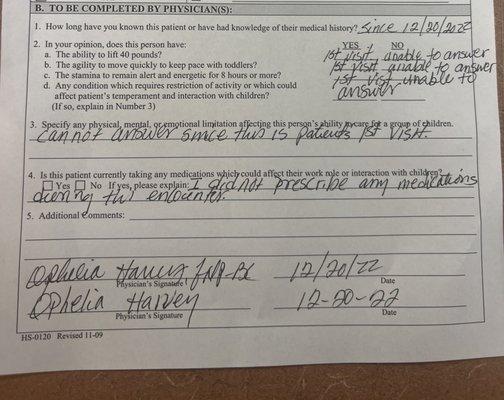 B. TO BE COMPLETED BY PHYSICIAN(S):
1. How long have you known this patient or have had knowledge of their medical history? Since 12/20/2022
2. In your opinion, does this person: YES NO
a. The ability to lift 40 pounds? 1st visit, unable to answer
b. The agility to move quickly to keep pace with toddlers? 1st visit unable to answer
c. The stamina to remain alert and energetic for 8 hours or more? 1st visit unable to
d. Any condition which requires restriction of activity or which could answer
affect patient's temperament and interaction with children?
(If so, explain in Number 3)
3. Specify any physical, mental, or emotional limitation affecting this person's ability to care for a group of children.
cannot answer since this is patients 1st visit.
4. Is this patient currently taking any medications which could affect their work role or interaction with children?
Yes No If yes, please explain: I did not prescribe any medications
during this encounter.
5. Additional Comments:
Ophelia Harvey, FNP-BC 12/20/22
Physician's Signature Date
Ophelia Harvey 12-20-22
Physician's Signature Date
HS-0120 Revised 11-09